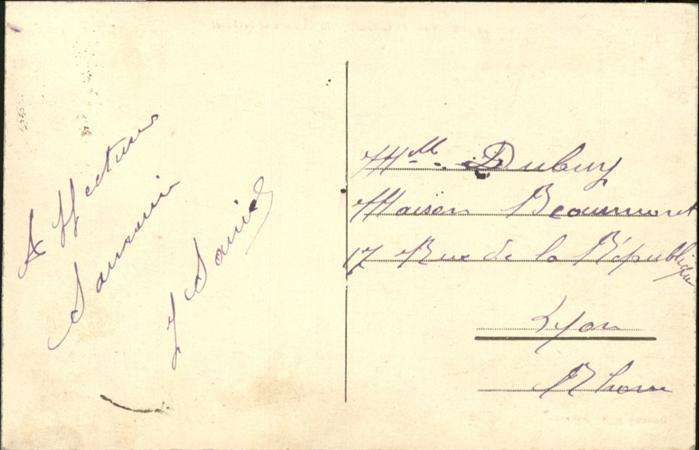 Affectueux
Souvenir
J
Mlle Dubuy
Maison Beaumont
17 Rue de la République
Lyon
Rhône